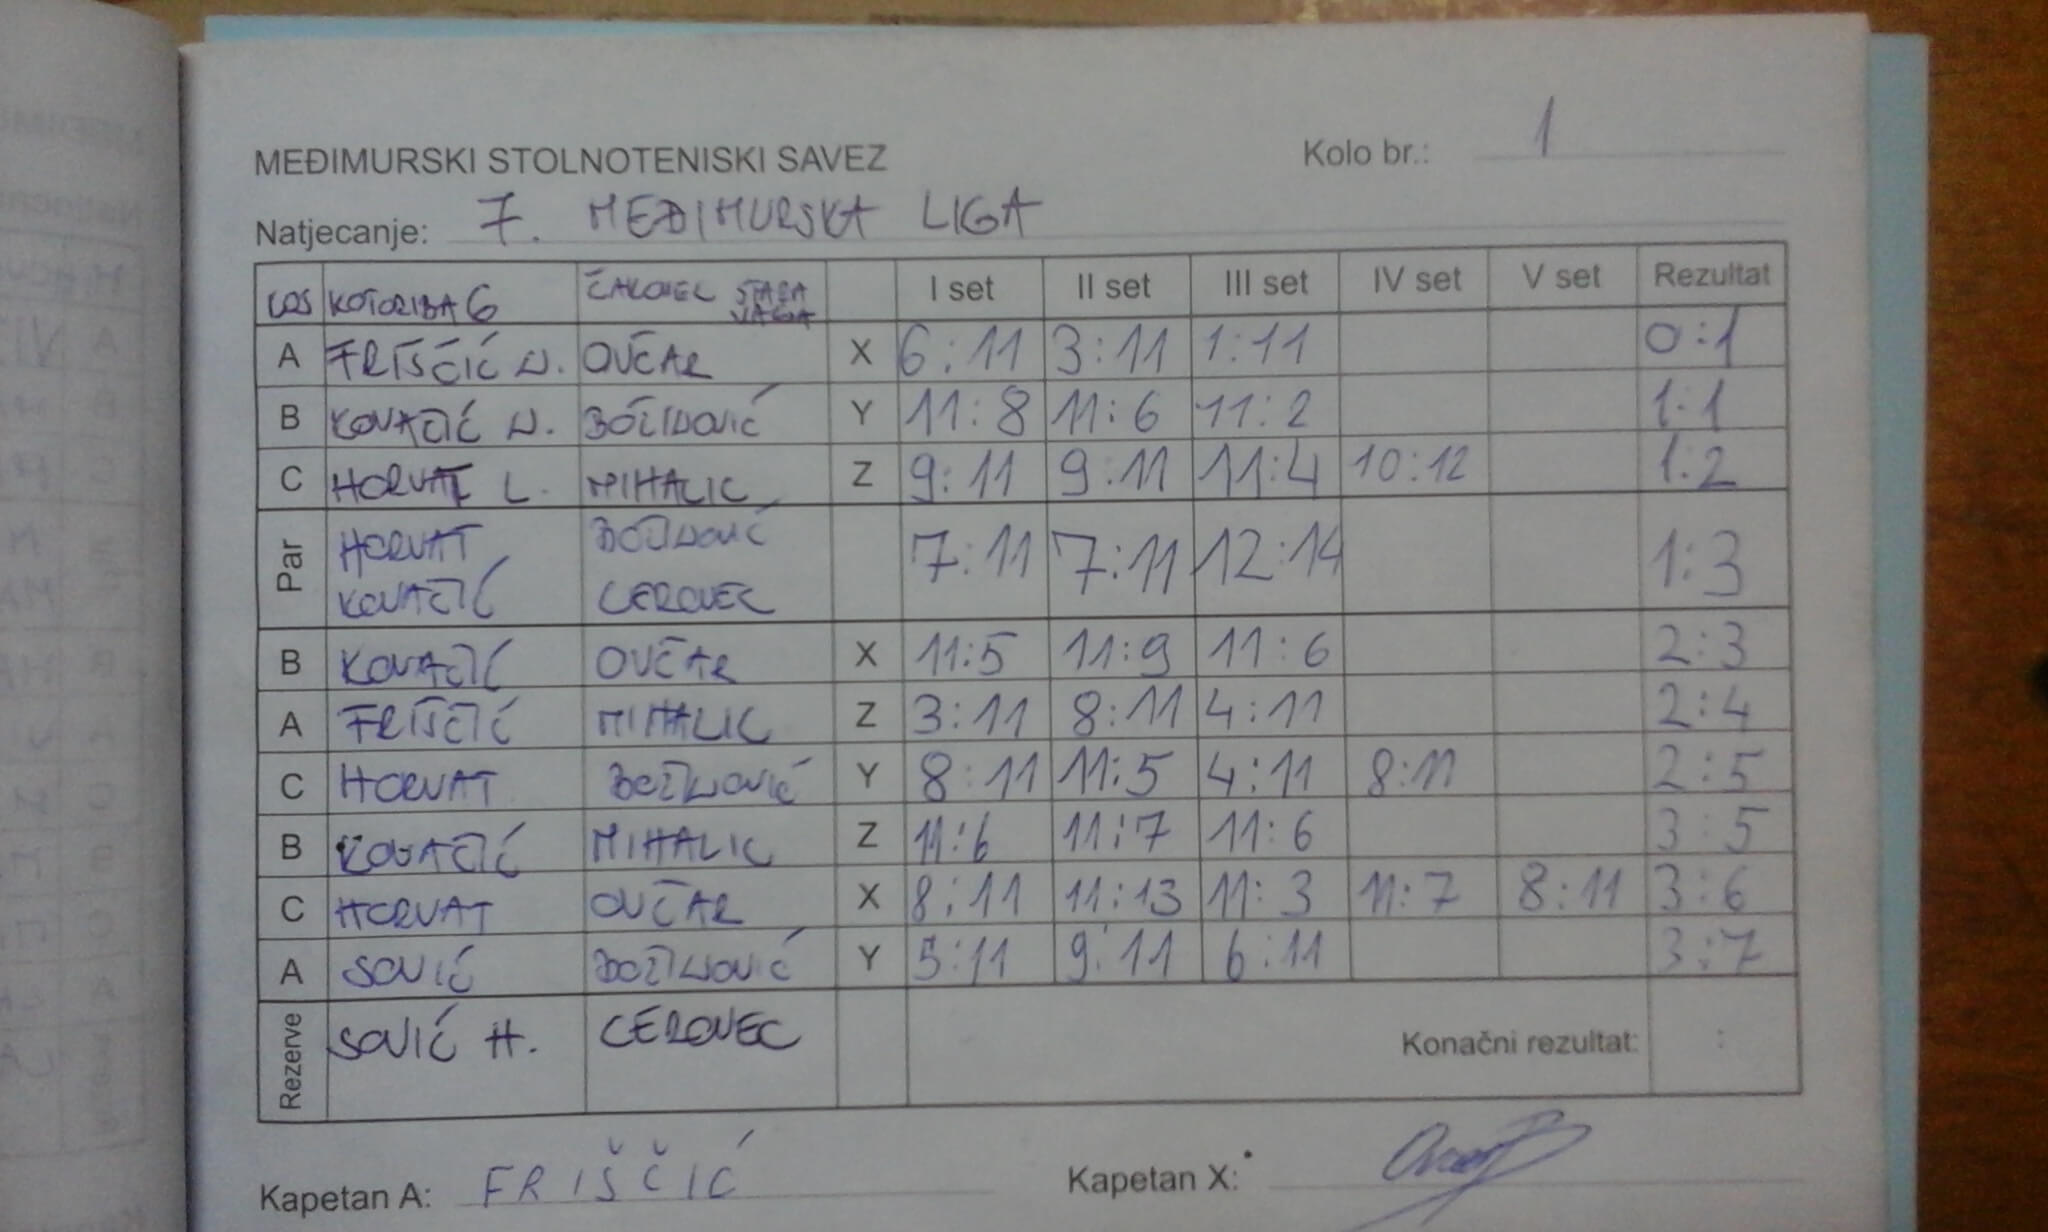 MEĐIMURSKI STOLNOTENISKI SAVEZ Kolo br.: 1
Natjecanje: 7. MEĐIMURSKA LIGA
LOS KOTORIBA 6 ČAKOVEC STARA VAGA I set II set III set IV set V set Rezultat
A FRIŠČIĆ N. OVČAR X 6:11 3:11 1:11 0:1
B KOVAČIĆ N. BOŽIDOVIĆ Y 11:8 11:6 11:2 1:1
C HORVAT L. MIHALIC Z 9:11 9:11 11:4 10:12 1:2
Par HORVAT KOVAČIĆ CEROVEC 7:11 7:11 12:14 1:3
B KOVAČIĆ OVČAR X 11:5 11:9 11:6 2:3
A FRIŠČIĆ MIHALIC Z 3:11 8:11 4:11 2:4
C HORVAT Y 8:11 11:5 4:11 8:11 2:5
B KOVAČIĆ MIHALIC Z 11:6 11:7 11:6 3:5
C HORVAT OVČAR X 8:11 11:13 11:3 11:7 8:11 3:6
A SOVIĆ Y 5:11 9:11 6:11 3:7
Rezerve SOVIĆ H. CEROVEC Konačni rezultat: :
Kapetan A: FRIŠČIĆ Kapetan X: